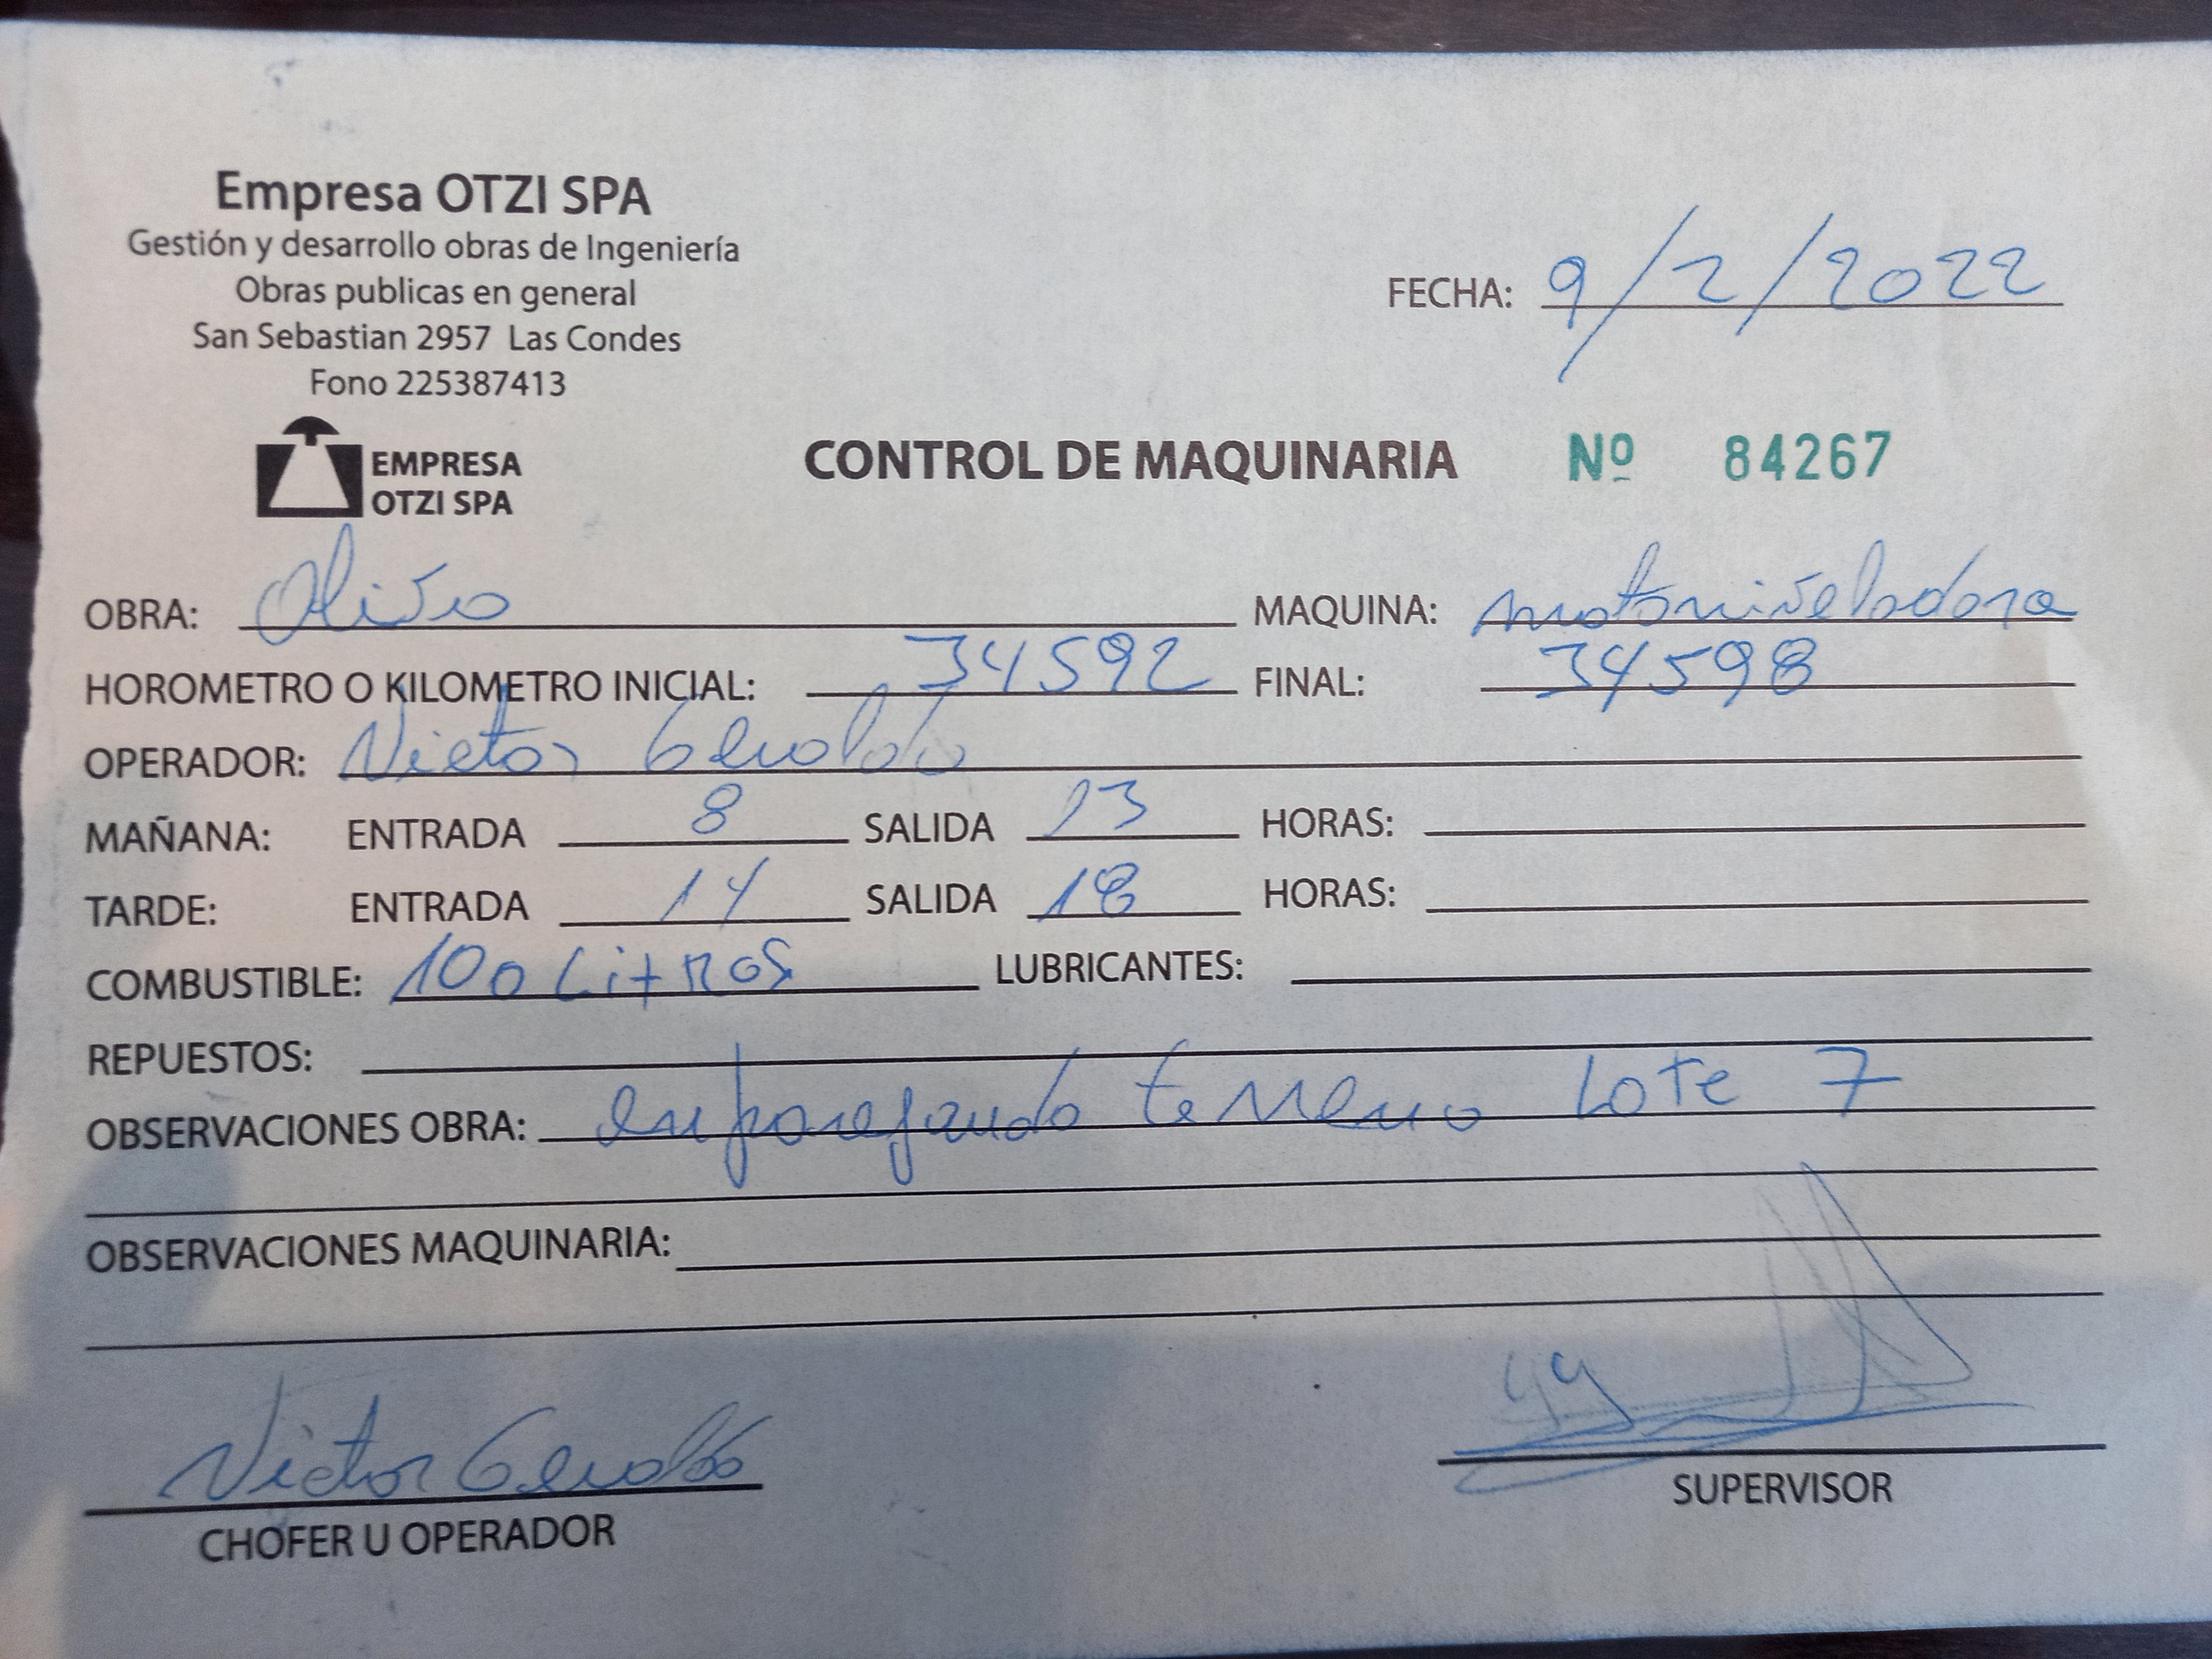 Empresa OTZI SPA
Gestión y desarrollo obras de Ingeniería
Obras publicas en general
San Sebastian 2957 Las Condes
Fono 225387413
FECHA: 9/2/2022
EMPRESA
OTZI SPA
CONTROL DE MAQUINARIA Nº 84267
OBRA: Olivo MAQUINA: motoniveladora
HOROMETRO O KILOMETRO INICIAL: 34592 FINAL: 34598
OPERADOR: Victor
MAÑANA: ENTRADA 8 SALIDA 13 HORAS:
TARDE: ENTRADA 14 SALIDA 18 HORAS:
COMBUSTIBLE: 100 LitRos LUBRICANTES:
REPUESTOS:
OBSERVACIONES OBRA: emparejando terreno Lote 7
OBSERVACIONES MAQUINARIA:
Victor
CHOFER U OPERADOR
SUPERVISOR